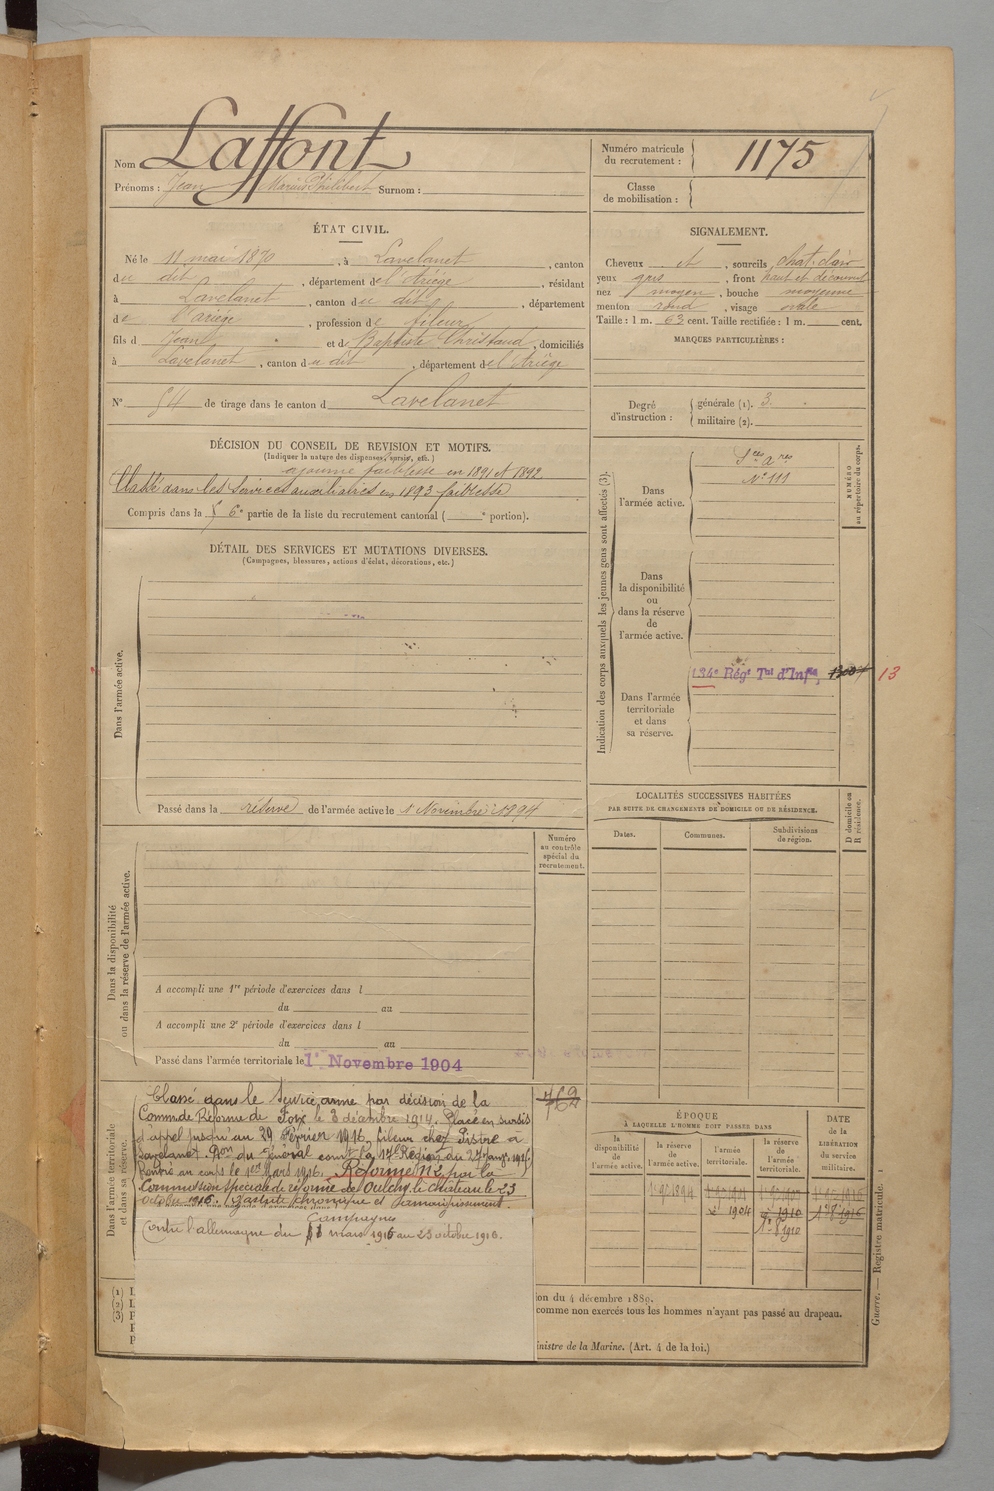 Nom Laffont
Prénoms : Jean Marius Philibert Surnom :
Numéro matricule du recrutement : 1175
Classe de mobilisation :
ÉTAT CIVIL.
Né le 11 mai 1870, à Lavelanet, canton
du dit, département de l'Ariège, résidant
à Lavelanet, canton du dit, département
de l'Ariège, profession de fileur
fils d Jean et de Baptiste Christaud, domiciliés
à Lavelanet, canton du dit, département de l'Ariège
N° 54 de tirage dans le canton d Lavelanet
SIGNALEMENT.
Cheveux et, sourcils chat. clair
yeux gris, front haut et découvert
nez moyen, bouche moyenne
menton rond, visage ovale
Taille : 1 m. 63 cent. Taille rectifiée : 1 m. cent.
MARQUES PARTICULIÈRES :
Degré d'instruction : générale (1). 3.
militaire (2).
DÉCISION DU CONSEIL DE REVISION ET MOTIFS.
(Indiquer la nature des dispenses, sursis, etc.)
ajourné faiblesse en 1891 et 1892
Classé dans les Services auxiliaires en 1893 faiblesse
Compris dans la 6e partie de la liste du recrutement cantonal ( e portion).
DÉTAIL DES SERVICES ET MUTATIONS DIVERSES.
(Campagnes, blessures, actions d'éclat, décorations, etc.)
Dans l'armée active.
Passé dans la réserve de l'armée active le 1 Novembre 1894
Indication des corps auxquels les jeunes gens sont affectés (3).
NUMÉRO au répertoire du corps.
Dans l'armée active.
Sces Ares
N° 111
Dans la disponibilité ou dans la réserve de l'armée active.
Dans l'armée territoriale et dans sa réserve.
134e Régt Tial d'Infie, 13
LOCALITÉS SUCCESSIVES HABITÉES
PAR SUITE DE CHANGEMENTS DE DOMICILE OU DE RÉSIDENCE.
Dates. Communes. Subdivisions de région. D domicile ou R résidence.
Numéro au contrôle spécial du recrutement.
Dans la disponibilité ou dans la réserve de l'armée active.
A accompli une 1re période d'exercices dans l
du au
A accompli une 2e période d'exercices dans l
du au
Passé dans l'armée territoriale le 1er Novembre 1904
769
Dans l'armée territoriale et dans sa réserve.
Classé dans le Service armé par décision de la
Comm de Réforme de Foix le 3 décembre 1914. Placé en sursis
d'appel jusqu'au 29 Février 1916, fileur chez Pistre à
Lavelanet. Don du Général comt la 17e Région du 27 janv. 1916
Rentré au corps le 1er Mars 1916. Réformé N°2 par la
Commission spéciale de réforme de Oulchy le Chateau le 23
octobre 1916. Gastrite chronique et amaigrissement.
Campagnes
Contre l'allemagne du 1 mars 1916 au 23 octobre 1916.
ÉPOQUE
À LAQUELLE L'HOMME DOIT PASSER DANS
la disponibilité de l'armée active. la réserve de l'armée active. l'armée territoriale. la réserve de l'armée territoriale.
DATE de la LIBÉRATION du service militaire.
1904 1910 1916
1910
(1) L
(2) L
(3) P
ion du 4 décembre 1889.
comme non exercés tous les hommes n'ayant pas passé au drapeau.
inistre de la Marine. (Art. 4 de la loi.)
Guerre. — Registre matricule. 1